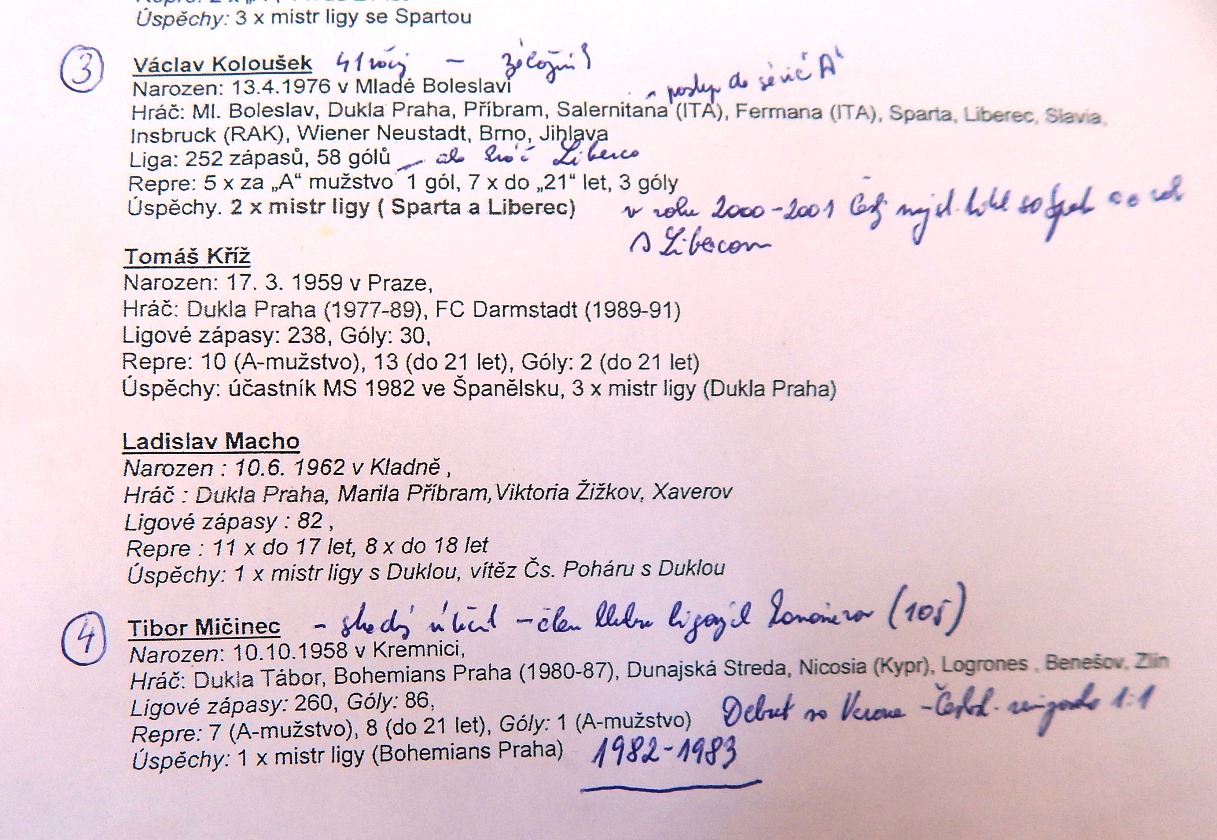 Úspěchy: 3 x mistr ligy se Spartou
3 Václav Koloušek 41 letý – záložník
Narozen: 13.4.1976 v Mladé Boleslavi
postup do série "A"
Hráč: Ml. Boleslav, Dukla Praha, Příbram, Salernitana (ITA), Fermana (ITA), Sparta, Liberec, Slavia,
Insbruck (RAK), Wiener Neustadt, Brno, Jihlava
Liga: 252 zápasů, 58 gólů – ale hráč Liberce
Repre: 5 x za „A" mužstvo 1 gól, 7 x do „21" let, 3 góly
Úspěchy. 2 x mistr ligy ( Sparta a Liberec) v roce 2000-2001
s Libercem
Tomáš Kříž
Narozen: 17. 3. 1959 v Praze,
Hráč: Dukla Praha (1977-89), FC Darmstadt (1989-91)
Ligové zápasy: 238, Góly: 30,
Repre: 10 (A-mužstvo), 13 (do 21 let), Góly: 2 (do 21 let)
Úspěchy: účastník MS 1982 ve Španělsku, 3 x mistr ligy (Dukla Praha)
Ladislav Macho
Narozen : 10.6. 1962 v Kladně ,
Hráč : Dukla Praha, Marila Příbram, Viktoria Žižkov, Xaverov
Ligové zápasy : 82 ,
Repre : 11 x do 17 let, 8 x do 18 let
Úspěchy: 1 x mistr ligy s Duklou, vítěz Čs. Poháru s Duklou
4 Tibor Mičinec – – člen klubu ligových kanonýrů (105)
Narozen: 10.10.1958 v Kremnici,
Hráč: Dukla Tábor, Bohemians Praha (1980-87), Dunajská Streda, Nicosia (Kypr), Logrones , Benešov, Zlín
Ligové zápasy: 260, Góly: 86,
Repre: 7 (A-mužstvo), 8 (do 21 let), Góly: 1 (A-mužstvo) Debut 1:1
Úspěchy: 1 x mistr ligy (Bohemians Praha) 1982-1983